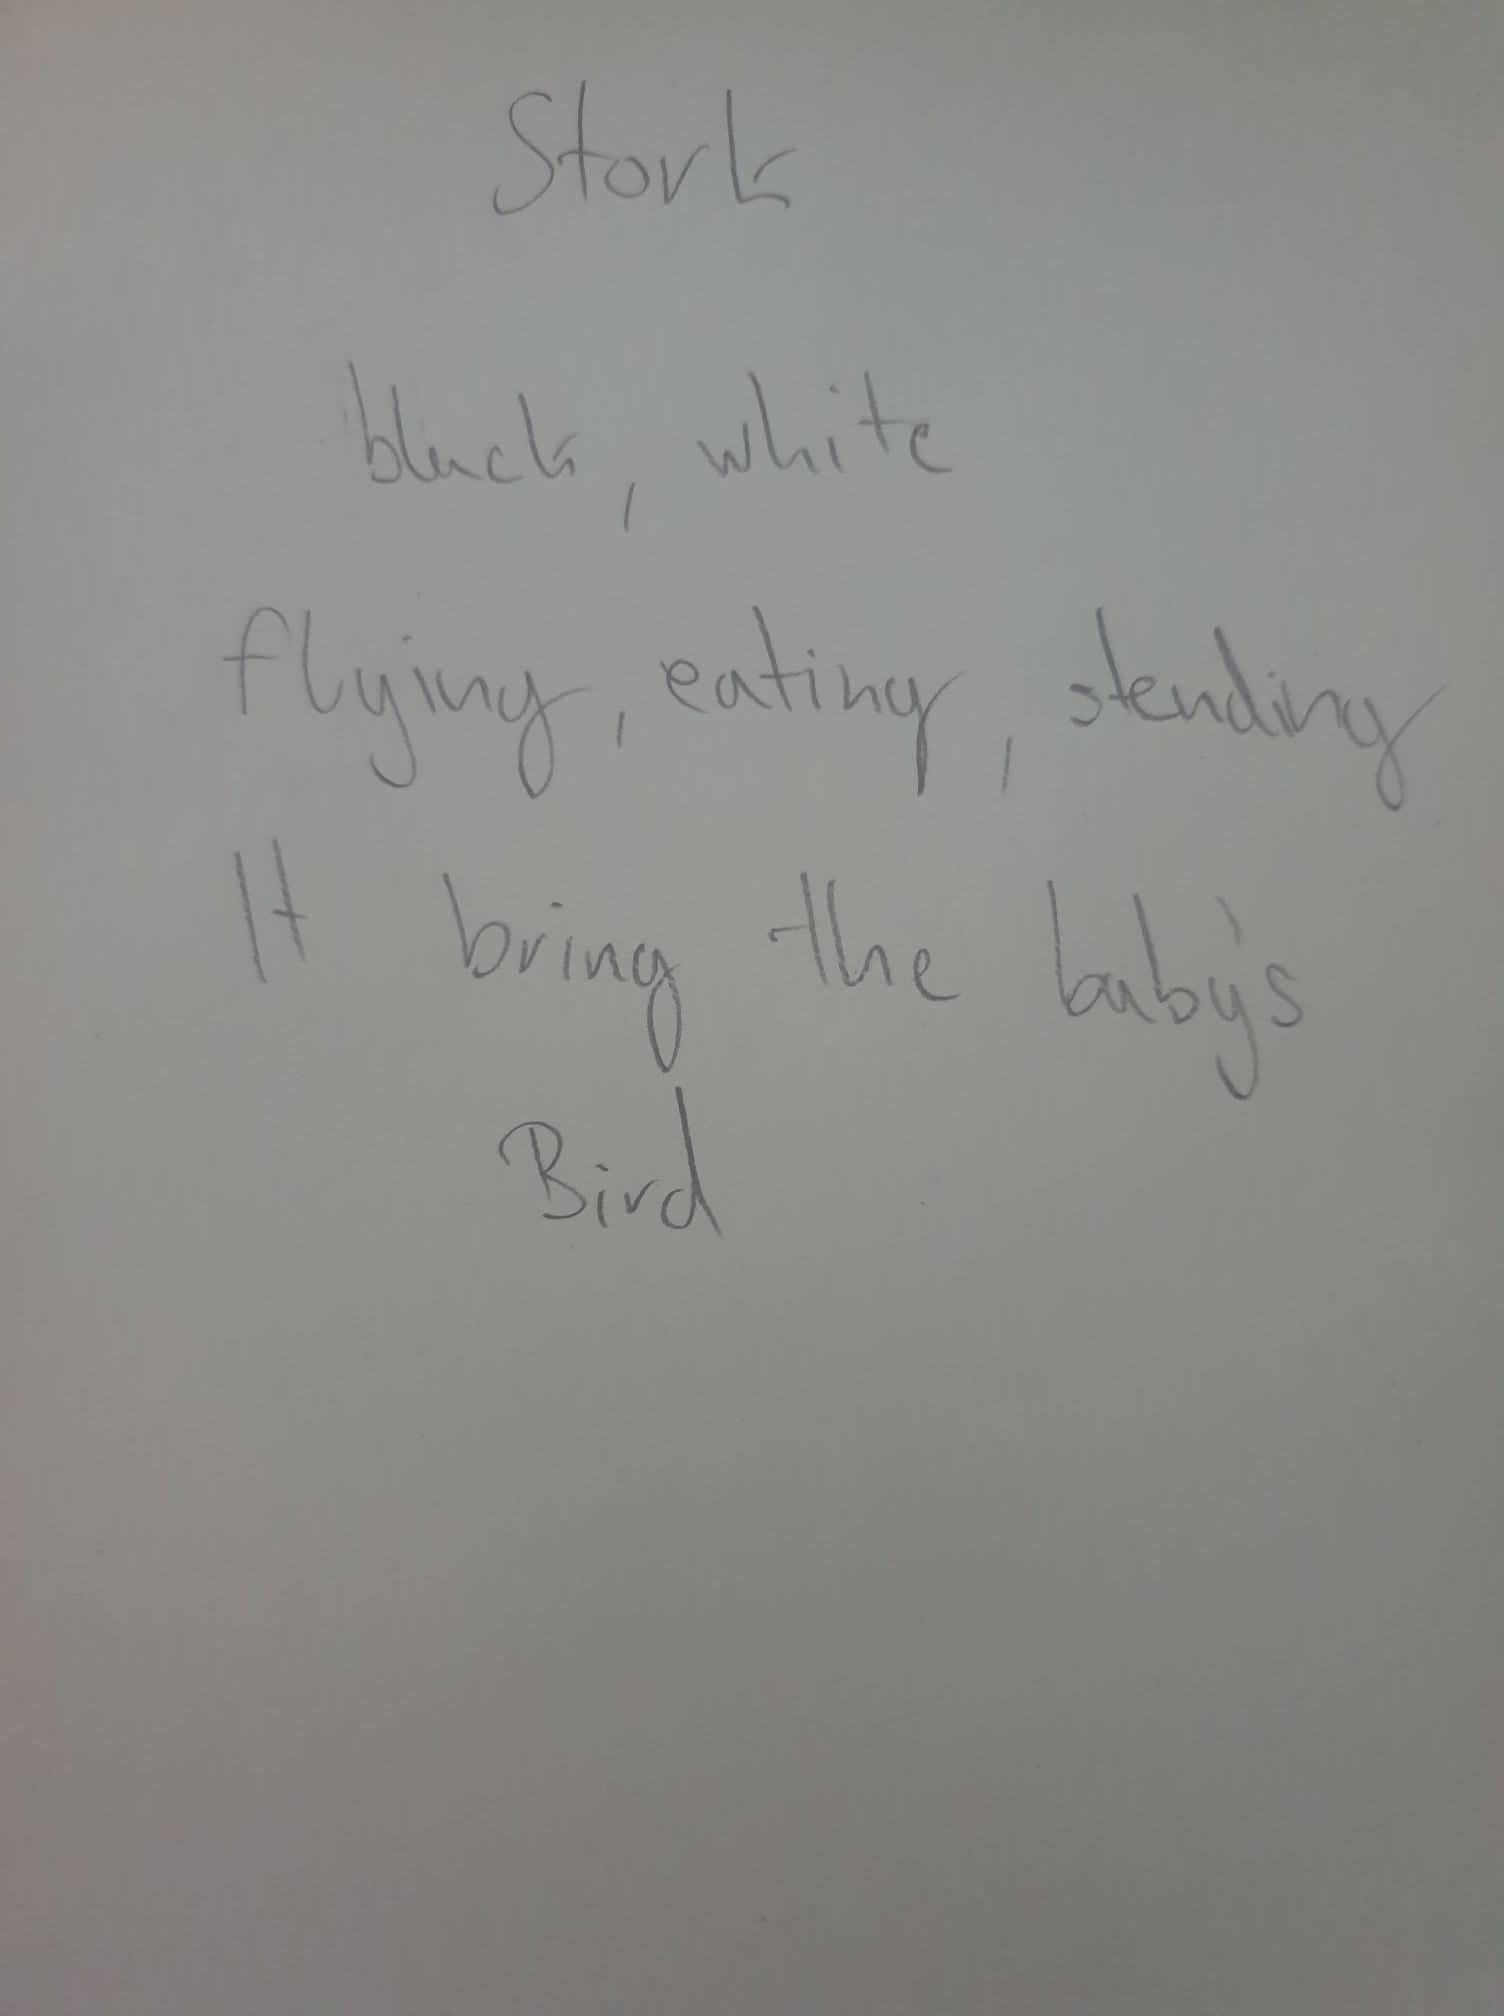 Stork
black, white
flying, eating, stending
It bring the baby's
Bird